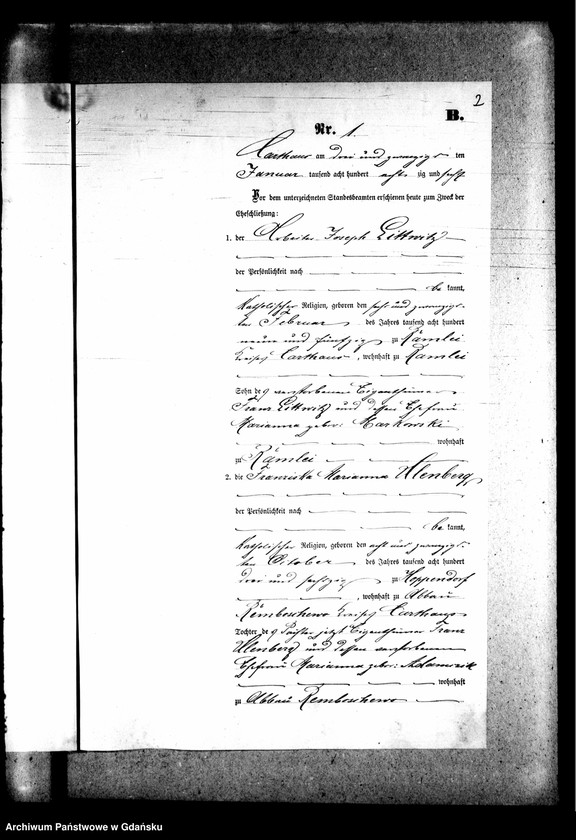 2
B.
Nr. 1.
Carthaus am drei und zwanzigsten
Januar tausend acht hundert acht zig und sechs
Vor dem unterzeichneten Standesbeamten erschienen heute zum Zweck der
Eheschließung:
1. der Arbeiter Joseph Littwitz
der Persönlichkeit nach
be kannt,
katholischer Religion, geboren den sechs und zwanzig-
ten Februar des Jahres tausend acht hundert
neun und fünfzig zu Kämlei
Kreises Carthaus, wohnhaft zu Kämlei
Sohn des verstorbenen Eigenthümers
Franz Littwitz und dessen Ehefrau
Marianna gebor: Markowski
wohnhaft
zu Kämlei
2. die Franziska Marianna Ulenberg
der Persönlichkeit nach
be kannt,
katholischer Religion, geboren den acht und zwanzig-
ten October des Jahres tausend acht hundert
drei und sechzig zu Hoppendorf
, wohnhaft zu Abbau
Remboschewo Kreises Carthaus
Tochter des jetzt Eigenthümers Franz
Ulenberg und dessen verstorbenen
Ehefrau Marianna gebor: Adamczik
wohnhaft
zu Abbau Remboschewo
Archiwum Państwowe w Gdańsku